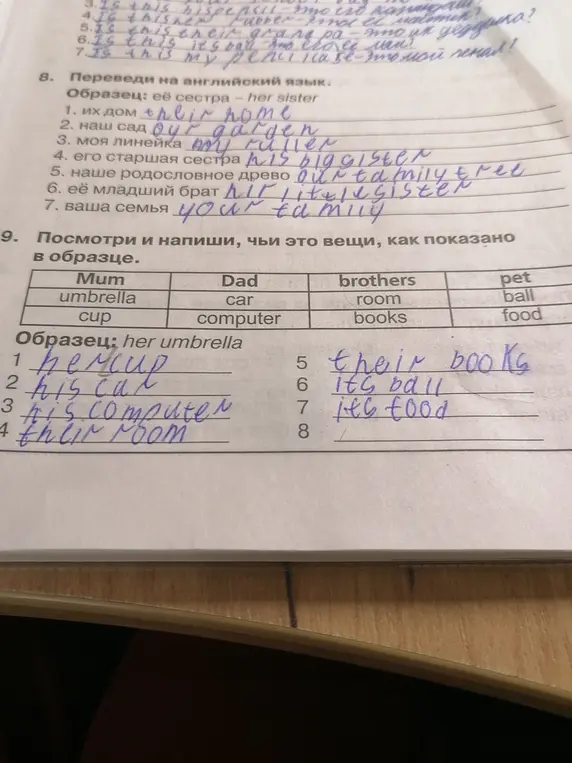 5. Is this their grandpa - это их дедушка?
6. Is this its ball - это его её мяч!
7. Is this my pencil case - это мой пенал!
8. Переведи на английский язык.
Образец: её сестра – her sister
1. их дом their home
2. наш сад our garden
3. моя линейка my ruller
4. его старшая сестра his big sister
5. наше родословное древо our family tree
6. её младший брат
7. ваша семья your family
9. Посмотри и напиши, чьи это вещи, как показано
в образце.
Mum Dad brothers pet
umbrella car room ball
cup computer books food
Образец: her umbrella
1 her cup 5 their books
2 his car 6 its ball
3 his computer 7 its food
4 their room 8